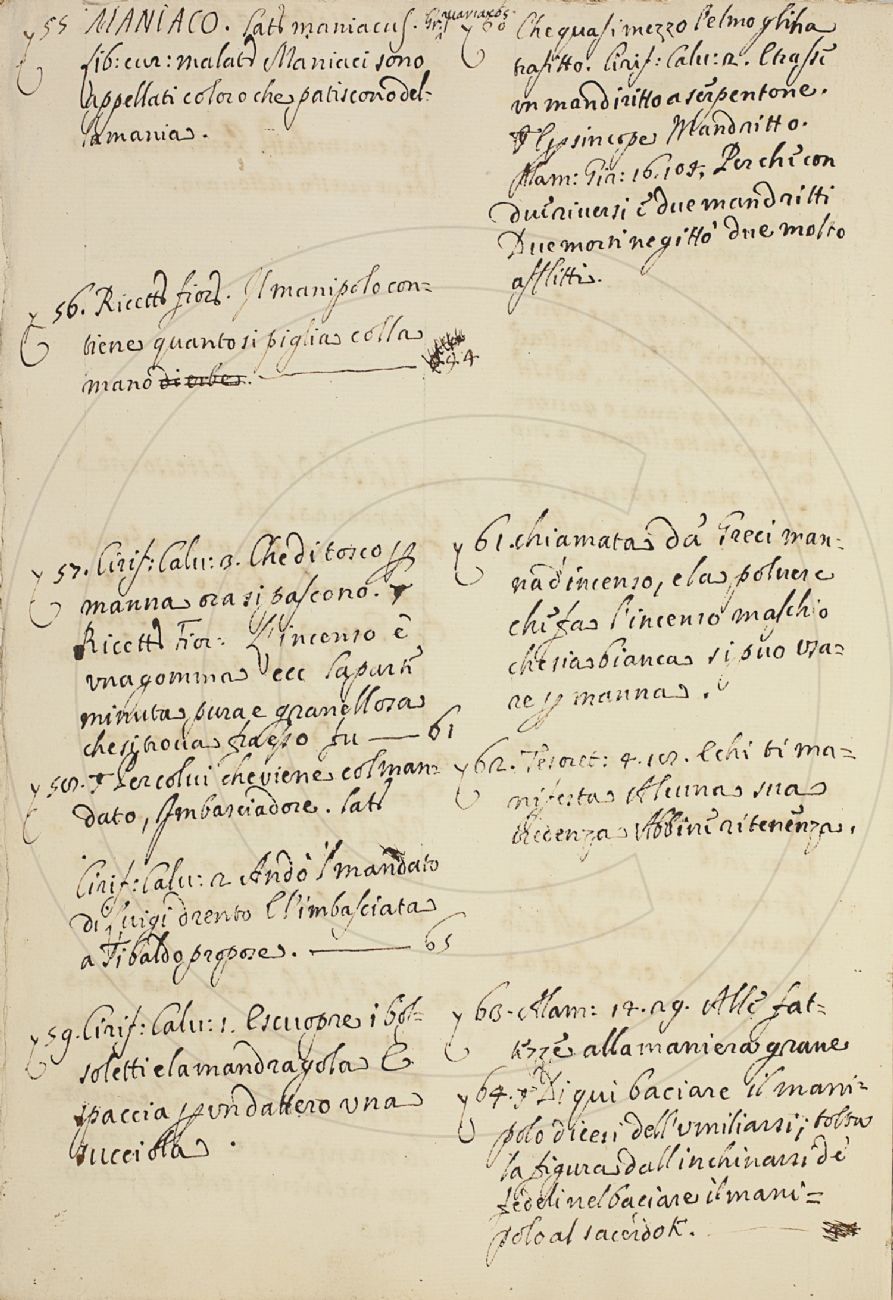 55 MANIACO. Lat. maniacus.
Lib: cur: malatt Maniaci sono
appellati coloro che patiscono del-
la mania.
56. Ricett fior. Il manipolo con=
tiene quanto si piglia colla
mano di erbe. 84
57. Cirif: Calu: 3. Che di tosco p
manna ora si pascono.
Ricett Fior: L'incenso è
una gomma ecc la parte
minuta pura e granellosa
che si troua fraesso fu — 61
58. Per colui che viene col man=
dato, Imbasciadore. Lat
Cirif: Calu: 2 Andò il mandato
di Luigi drento E l'imbasciata
a Tibaldo propose. — 65
59. Cirif: Calu: 1. E scuopre i bos-
soletti e la mandragola E
spaccia p un dattero una
succiola.
60 Che quasi mezzo l'elmo gli ha
trafitto. Cirif: Calu: 2. E trasse
un mandiritto a serpentone.
P sincope Mandritto.
Alam: Gir: 16. 104. Perchè con
due riuersi e due mandritti
Due morti ne gittò due molto
afflitti.
61. chiamata da Greci man-
na d'incenso, e la poluere
che fa l'incenso maschio
che sia bianca si può usa=
re p manna.
62. Tesoret: 4. 18. E chi ti ma=
nifesta Alcuna sua
credenza Abbine ritenenza.
63. Alam: 14. 29. Alle fat-
tezze alla maniera graue
64. Di qui baciare il mani-
polo dicesi dell'umiliarsi; tolta
la figura dall'inchinarsi de
fedeli nel baciare il mani=
polo al sacerdote.